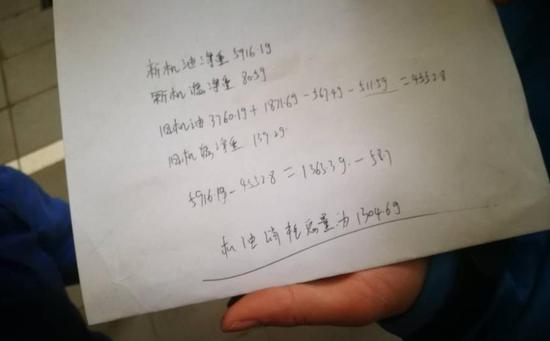 新机油净重 5916.1g
新机滤净重 80.5g
旧机油 3760.1g + 1871.6g - 567.4g - 511.5g = 4552.8
旧机滤净重 139.2g
5916.1g - 4552.8 = 1363.3g - 58.7
机油消耗总量为1304.6g